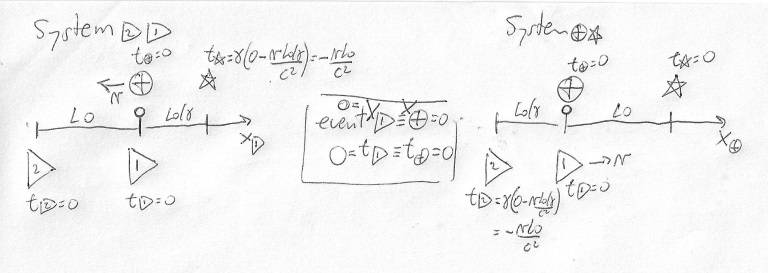 System ▷2 ▷1
t⊕=0
t☆=γ(0-vL0/γ/c²)=-vL0/c²
← v
L0
L0/γ
x▷1
2
1
t▷2=0
t▷1=0
0=x▷1≡x⊕=0
event
0=t▷1≡t⊕=0
System ⊕☆
t⊕=0
t☆=0
L0/γ
L0
x⊕
2
1
→ v
t▷1=0
t▷2=γ(0-vL0/γ/c²)
=-vL0/c²